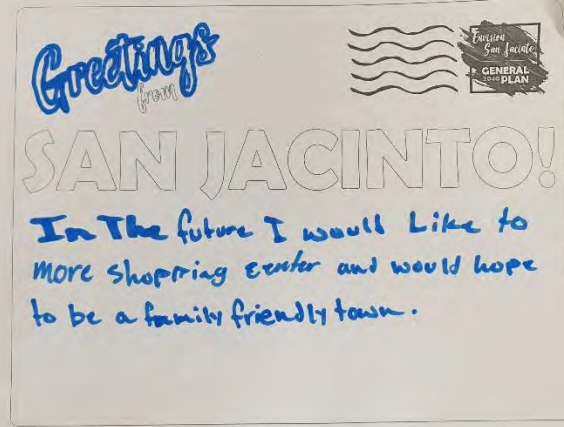 Greetings
from
Envision
San Jacinto
GENERAL
2040 PLAN
SAN JACINTO!
In The future I would Like to
more shopping center and would hope
to be a family friendly town.